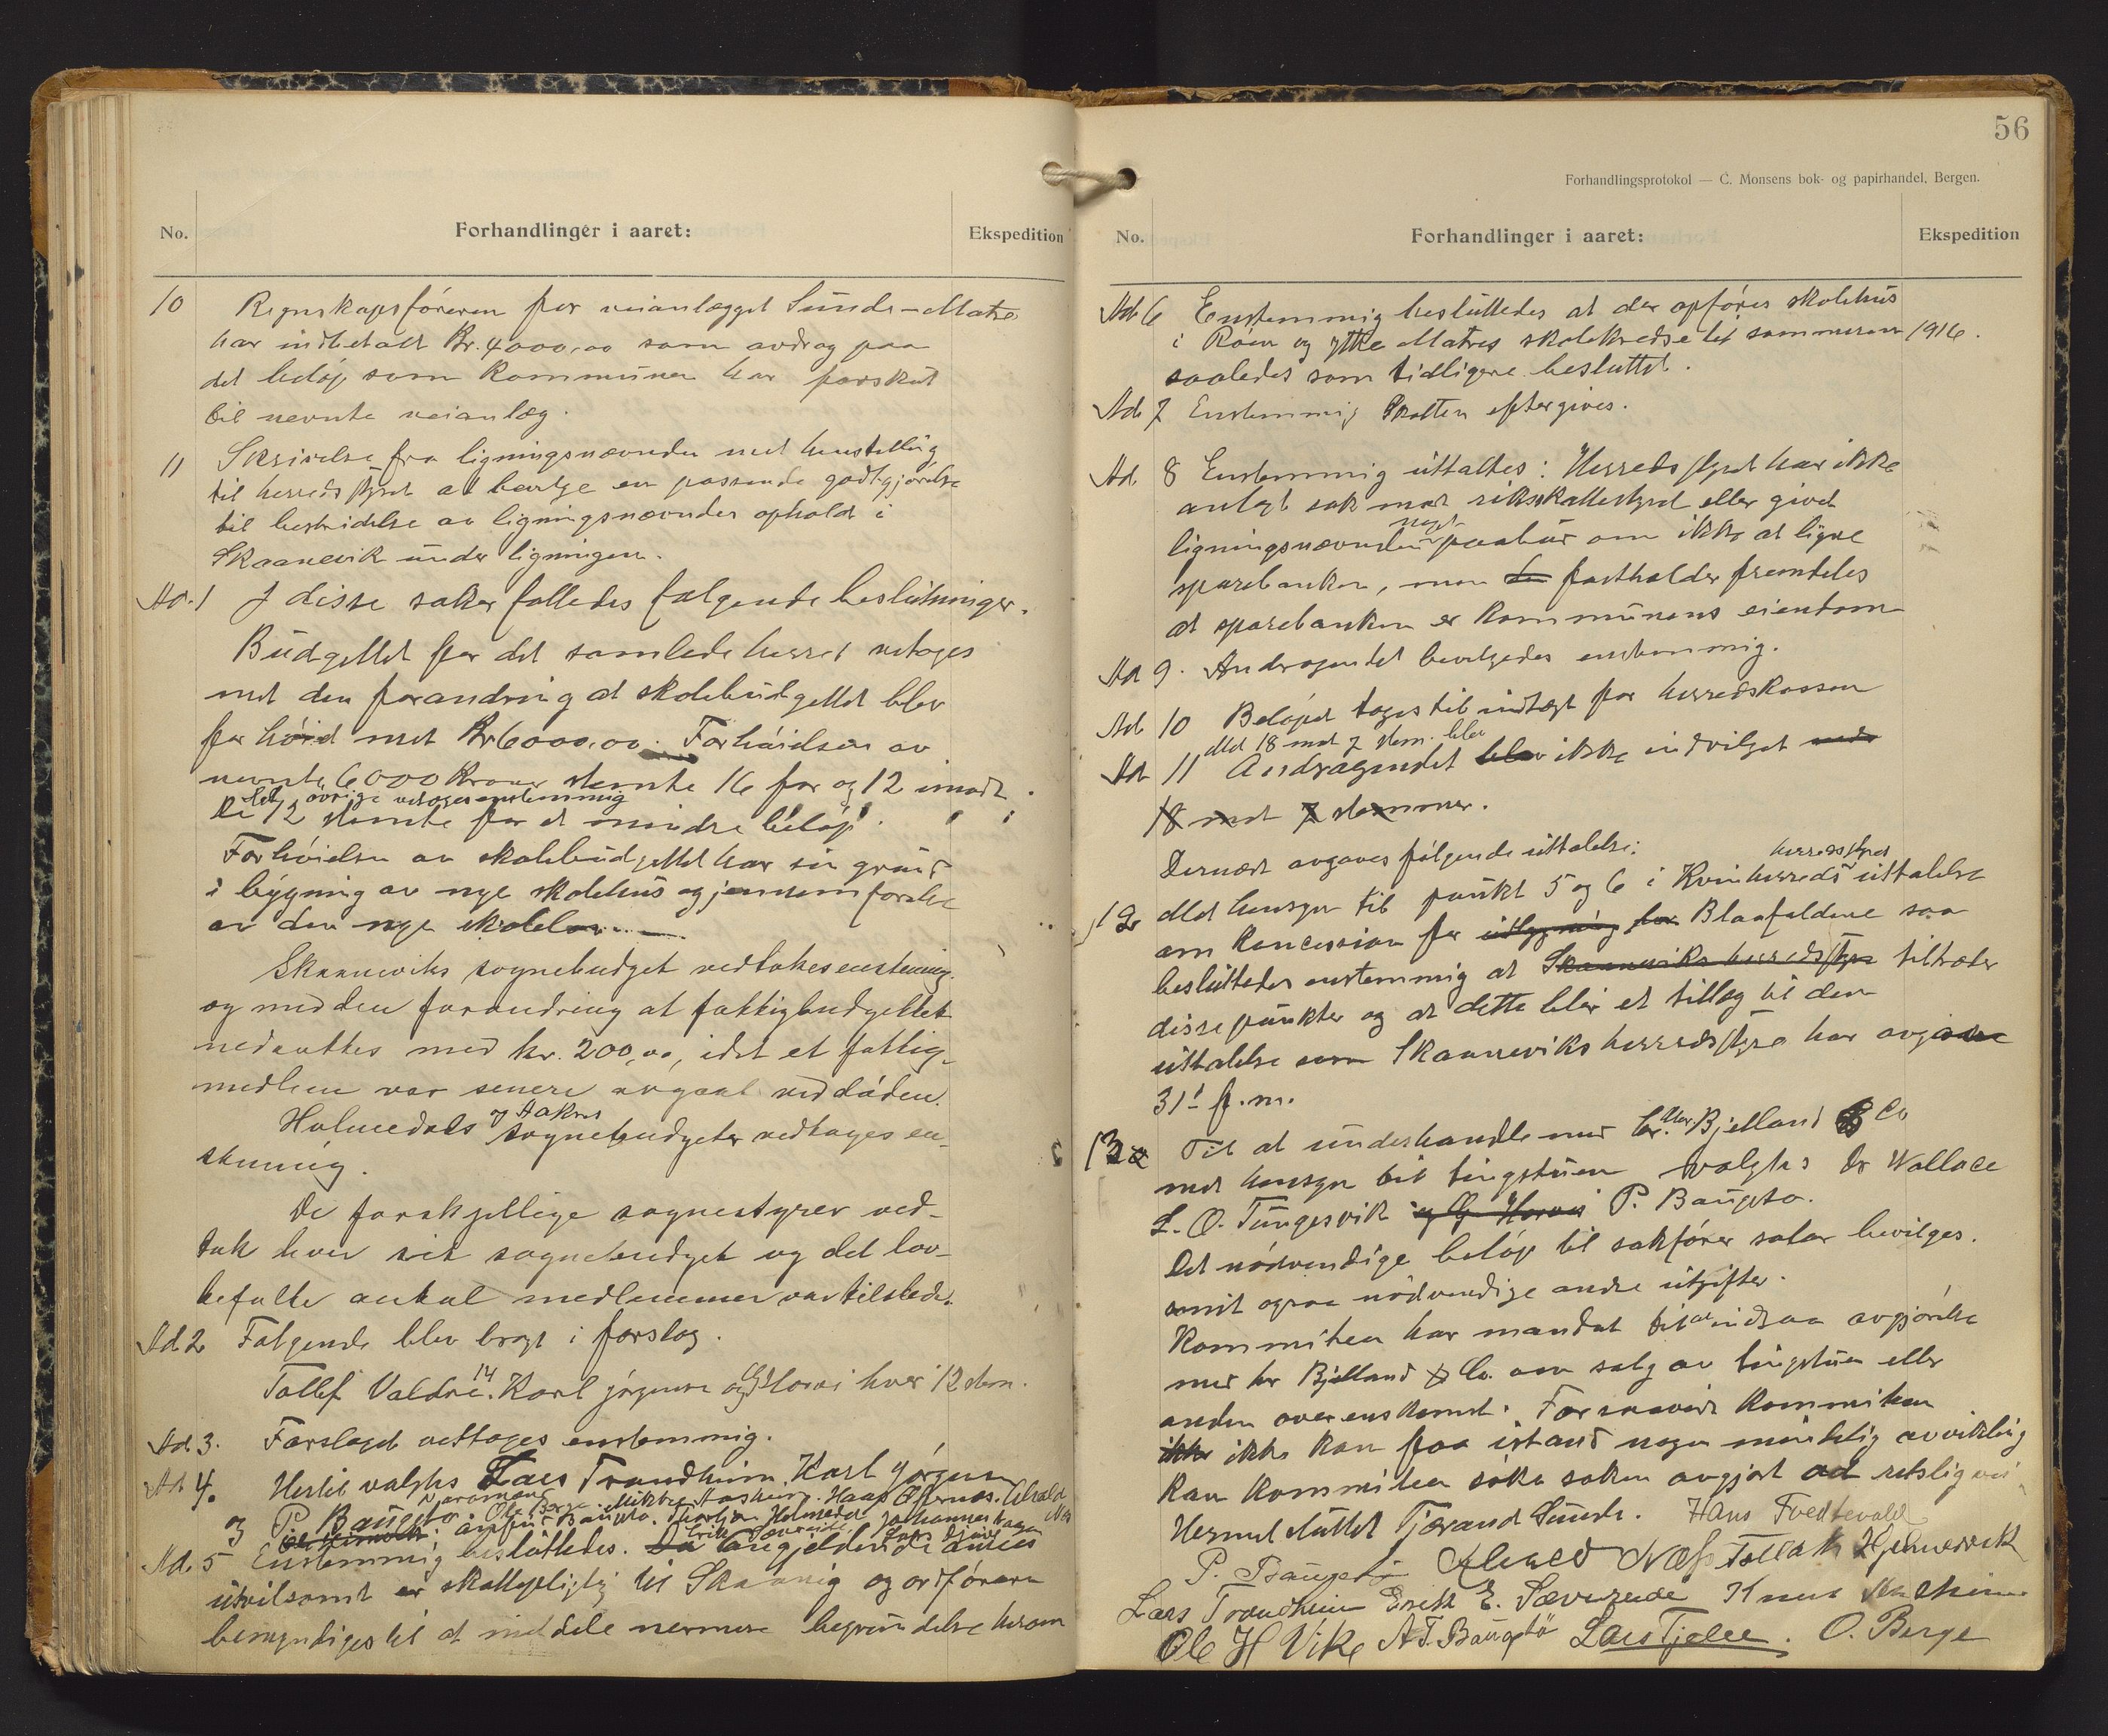 No.
Forhandlinger i aaret:
Ekspedition
10 Regnskapsföreren for veianlægget Sunde-Matre
har indbetalt Kr. 4000,00 som avdrag paa
det belöp som Kommunen har forskut
til nevnte veianlæg.
11 Skrivelse fra ligningsnævnden med henstilling
til herredsstyret at bevilge en passende godtgjörelse
til bestridelse av ligningsnævndes ophold i
Skaanevik under ligningen.
Ad. 1 I disse saker falledes følgende beslutninger.
Budgettet for det samlede herred vetoges
med den forandring at skolebudgettet blev
forhöid med Kr 6000,00. Forhöidsen av
nevnte 6000 Kroner stemte 16 for og 12 imodt.
Det övrige vetoges enstemmig
De 12 stemte for et mindre belöp.
Forhöielsen av skolebudgettet har sin grund
i bygning av nye skolehus og jennemförelse
av den nye skolelov.
Skaaneviks sognebudget vedtokes enstemig.
og med den forandring at fattigbudgettet
nedsattes med kr. 200,00, idet et fattig-
medlem var senere avgaat ved döden.
Holmedals og Aakres sognebudgeter vedtoges en-
stemmig.
De forskjellige sognestyrer ved-
tok hver sit sognebudget og det lov-
befalte antal medlemmer var tilstede.
Ad 2 Følgende blev bragt i forslag.
Tollef Valdre 14. Karl jörgensen og G Horvei hver 12 stem.
Ad 3. Forslaget vettoges enstemmig.
Ad 4. Hertil valgtes Lars Trondheim Karl Jörgensen
og P. Baugstö
Ad. 5 Enstemmig besluttedes.
utvilsomt er skattepligtig til Skaanevig og ordföreren
bemyndiges til at meddele nermere begrundelse herom
56
Forhandlingsprotokol — C. Monsens bok- og papirhandel, Bergen.
No.
Forhandlinger i aaret:
Ekspedition
Ad 6 Enstemmig besluttedes at der opföres skolehus
i Röen og ytre Matres skolekredse til sommeren 1916.
saaledes som tidligere besluttet.
Ad 7 Enstemmig Skatten eftergives.
Ad 8 Enstemmig uttaltes: Herredsstyret har ikke
anlagt sak mot riksskattestyret eller givet
ligningsnævnden noget paabud om ikke at ligne
sparebanken, men den fastholder fremdeles
at sparebanken er Kommunens eiendom
Ad 9. Andragendet bevilgedes enstemmig.
Ad 10 Belöpet toges til indtægt for herredskassen
Med 18 mot 7 stem. blev
Ad 11 Andragendet blev ikke indvilget med
18 mot 7 stemmer.
Dernæst avgaves fölgende uttalelse:
12 Med hensyn til punkt 5 og 6 i Kvinherreds herredsstyres uttalelse
om Koncession for utbygning for Blaafaldene saa
besluttedes enstemmig at Skaaneviks herredsstyre tiltræder
disse punkter og at dette blir et tillæg til den
uttalelse som Skaaneviks herredsstyre har avgivet
31' f.m.
13 Til at underhandle med Chr. Bjelland & Co
med hensyn til tingstuen valgtes Dr Wallace
L. O. Tungesvik og G. Horvei P. Baugstö.
Det nödvendige belöp til sakförer salær bevilges.
samt ogsaa nödvendige andre utgifter.
Kommiteen har mandat til at indgaa avgjörelse
med hr Bjelland & Co. om salg av tingstuen eller
anden overenskomst. Forsaavidt Kommiteen
ikke ikke kan faa istand nogen mindelig avvikling
kan kommiteen söke saken avgjort ad retslig vei
Hermed sluttet Tjærand Sunde. Hans Tvedtevald
P. Baugstö Alvald Næs Tollak Hjelmervik
Lars Trondheim Erik E. Sævereide Knut
Ole H Vike A T. Baugstö Lars Tjelle. O. Berge